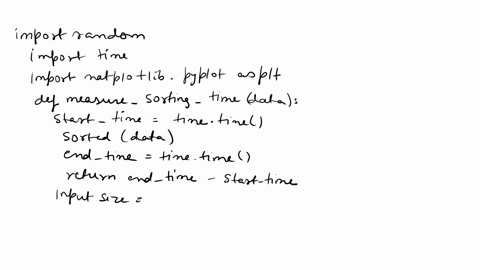 import random
import time
import matplotlib. pyplot as plt
def measure_sorting_time (data):
start_time = time.time()
sorted (data)
end_time = time.time()
return end_time - start-time
Input size =